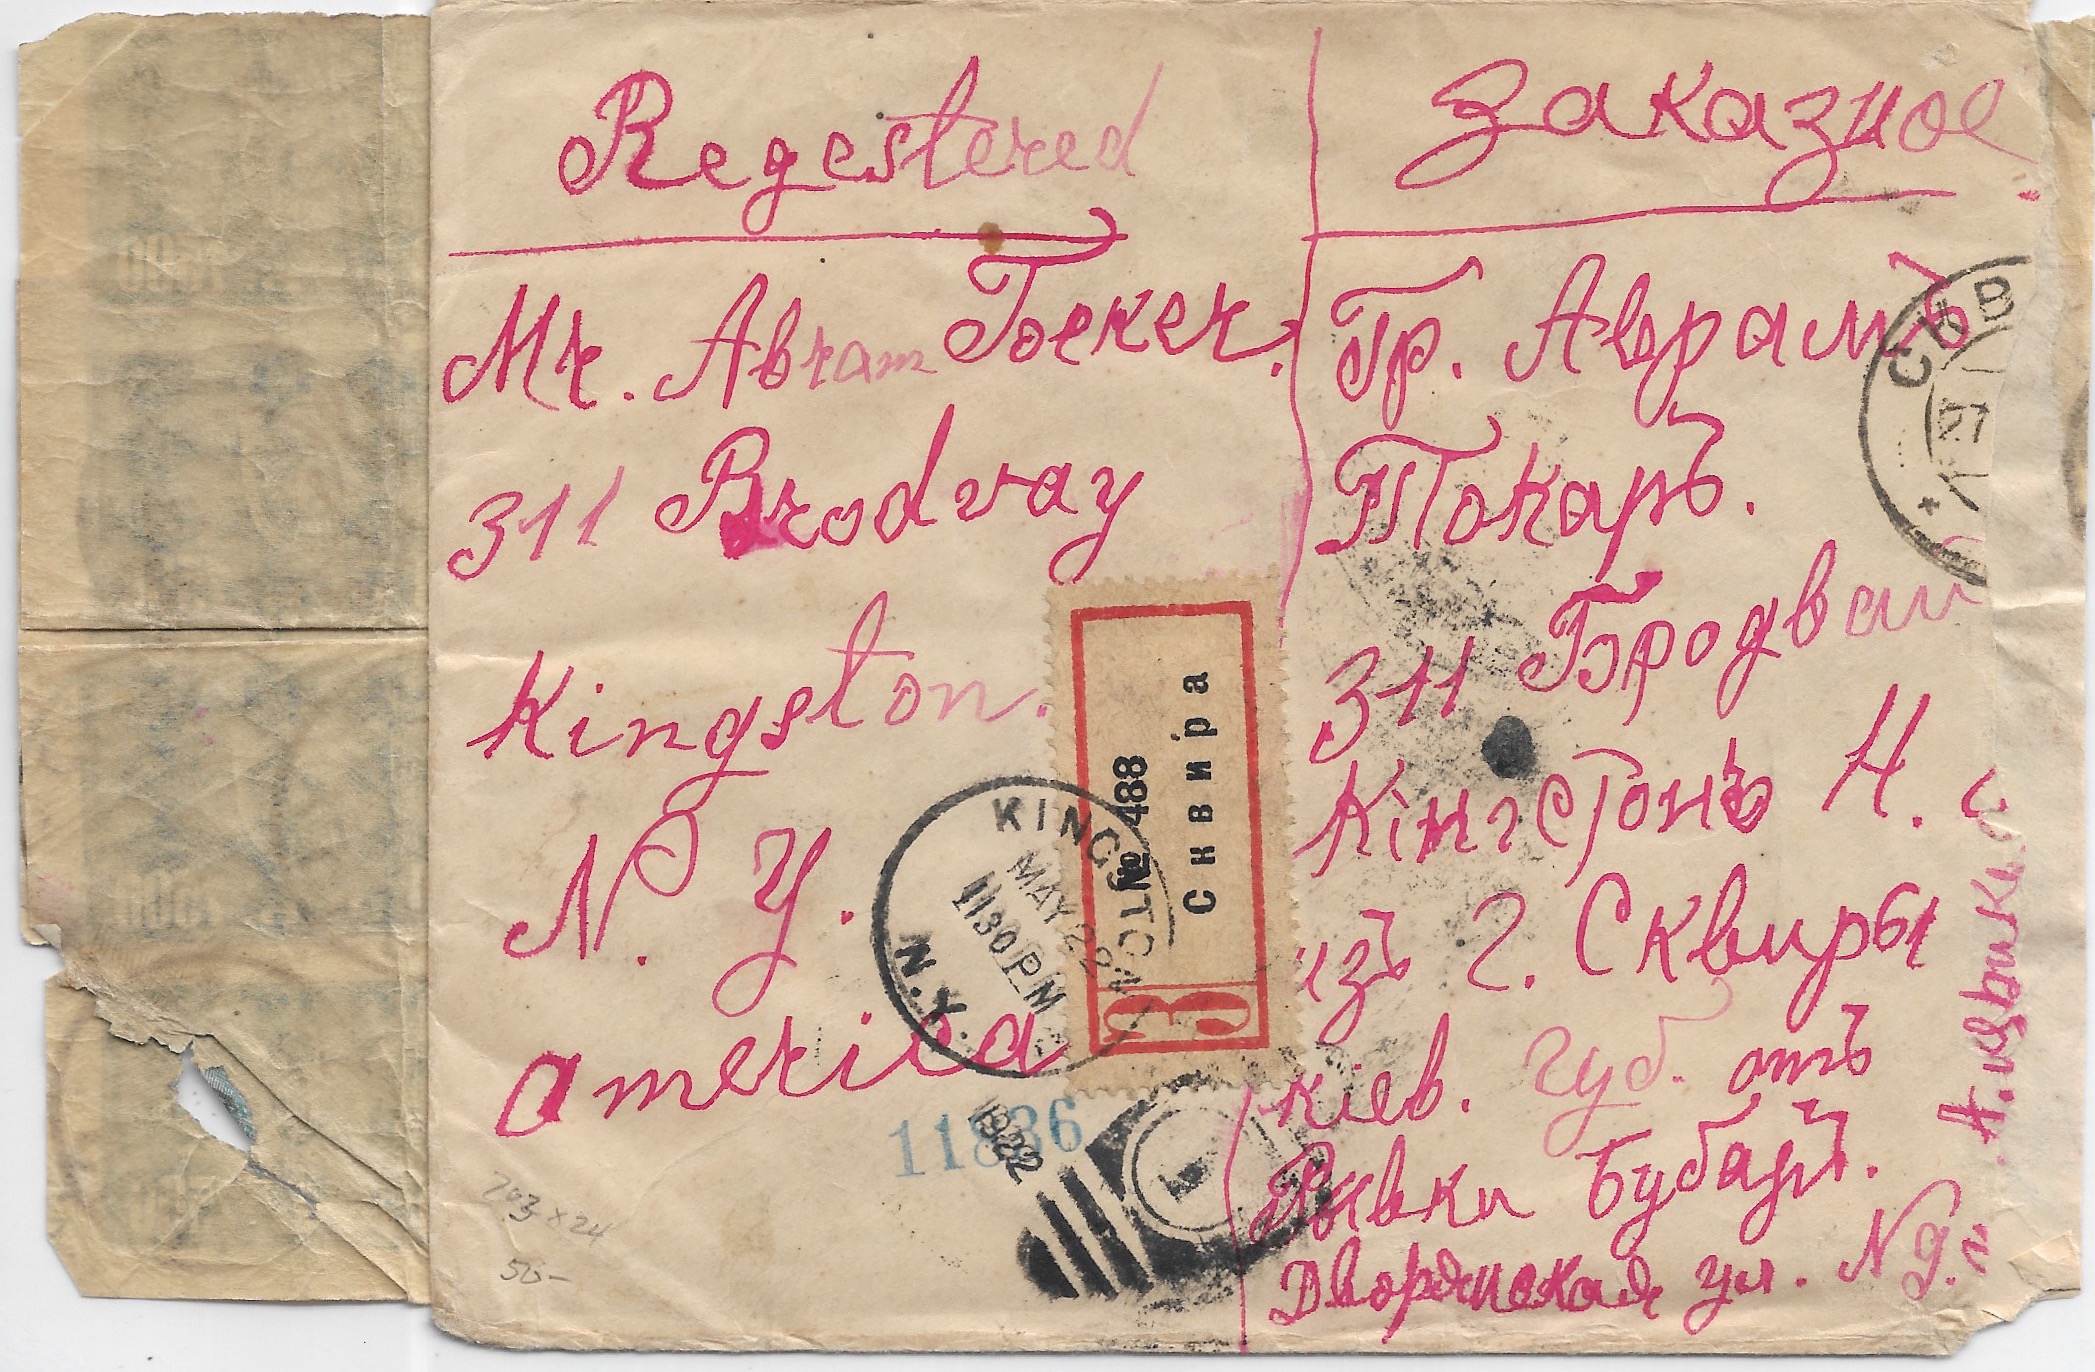 Regestered
Mr. Abram Tocker.
311 Brodvay
Kingston.
N. Y.
America
Заказное
Гр. Аврамъ
Токаръ.
311 Бродвай
Кінгстонъ Н.
изъ г. Сквиры
Кіев. губ. отъ
Рывки Бубаръ.
Дворянская ул. N
№ 488
Сквира
З
KINGSTON
N.Y.
MAY 22
1130 PM
1922
11836
СКВ
27
703 x 24
50-